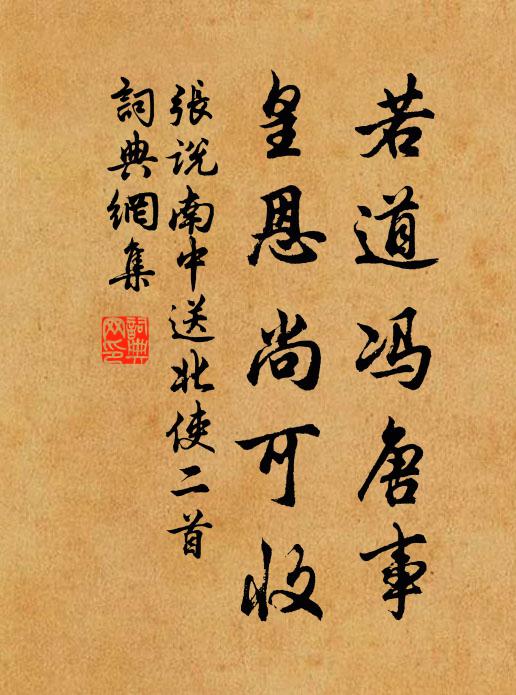 若道冯唐事
皇恩尚可收
張說南中送北使二首
詞典網集
詞典網印